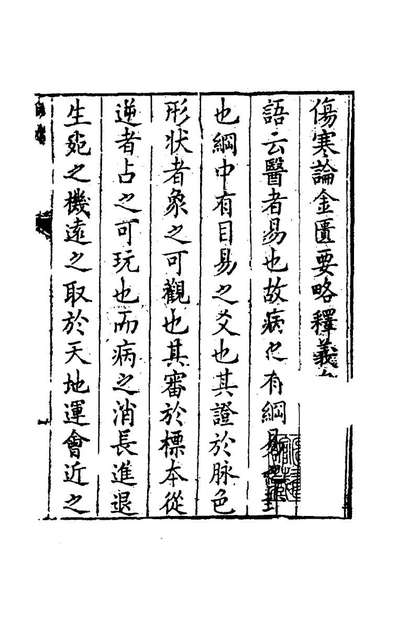 傷寒論金匱要略釋義
語云醫者易也故病之有綱易之卦
也綱中有目易之爻也其證於脉色
形状者象之可觀也其審於標本從
逆者占之可玩也而病之消長進退
生死之機遠之取於天地運會近之